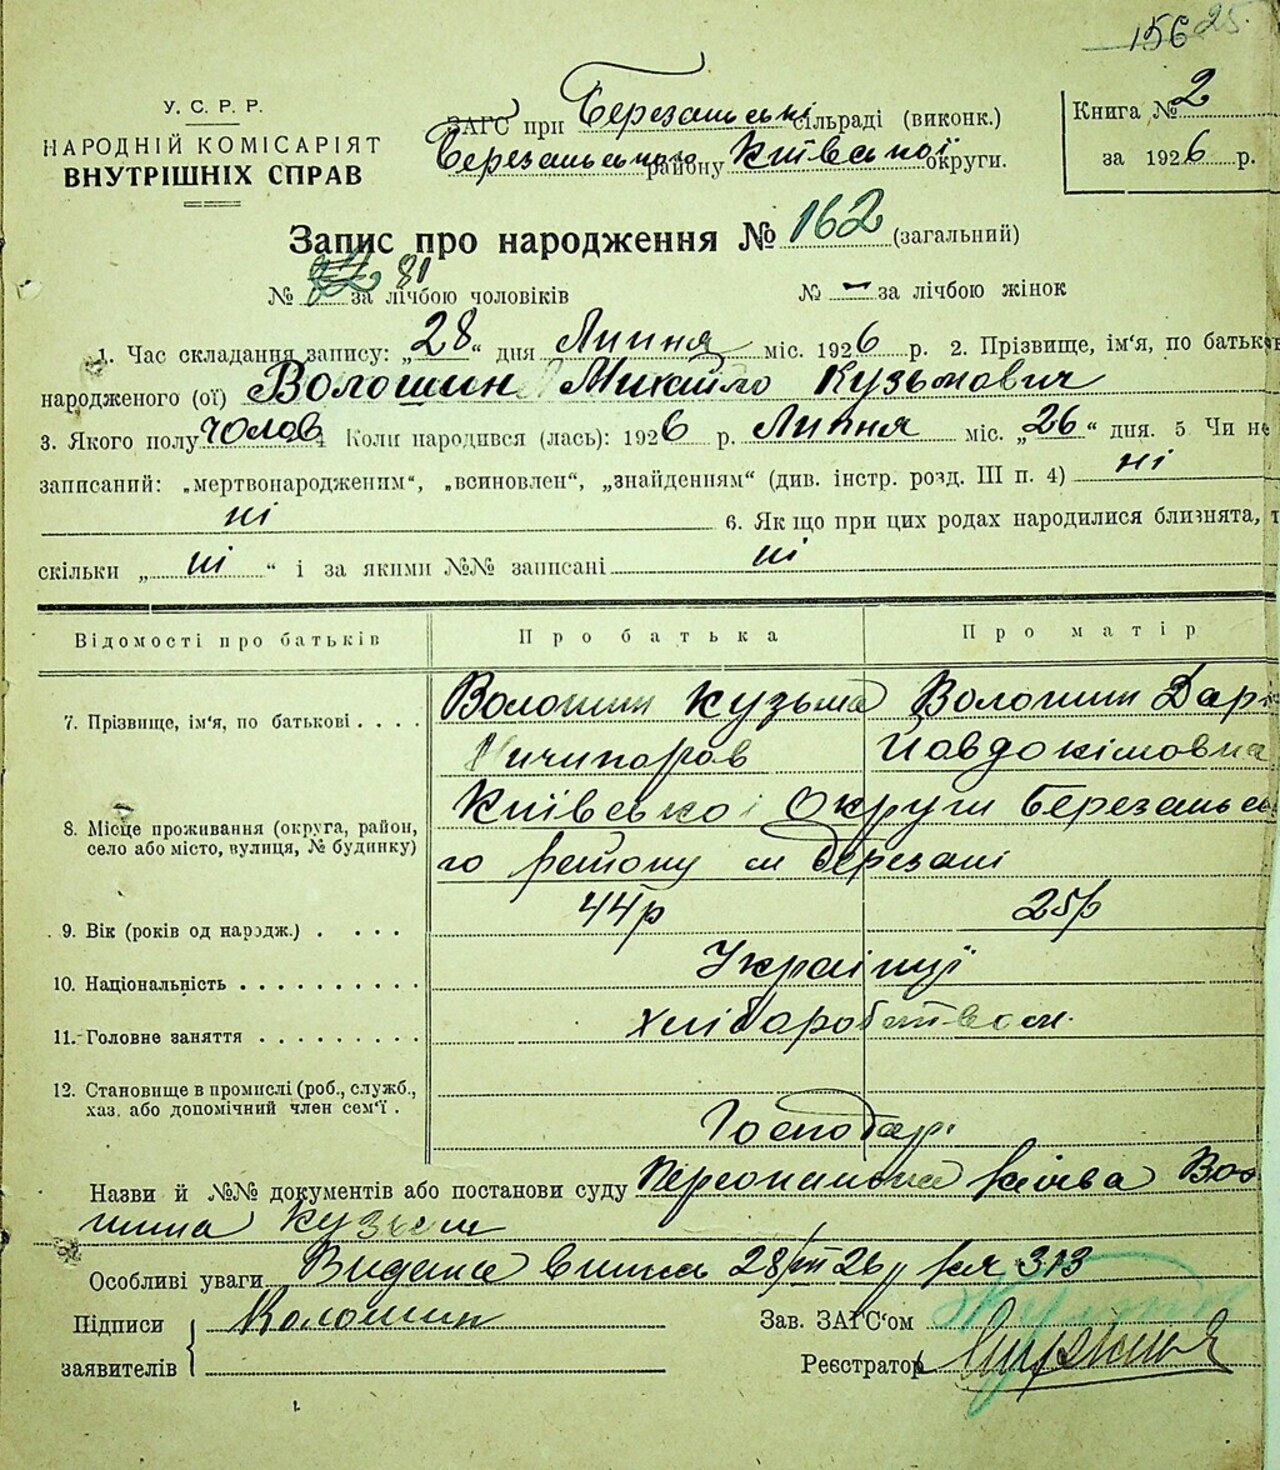 156 25.
У. С. Р. Р.
НАРОДНІЙ КОМІСАРІЯТ
ВНУТРІШНІХ СПРАВ
ЗАГС при Березанські сільраді (виконк.)
Березанського району Київської округи.
Книга № 2
за 1926 р.
Запис про народження № 162 (загальний)
№ 81 за лічбою чоловіків № – за лічбою жінок
1. Час складання запису: „28“ дня Липня міс. 1926 р. 2. Прізвище, ім'я, по батьков
народженого (ої) Волошин Михайло Кузьмович
3. Якого полу чолов 4 Коли народився (лась): 1926 р. Липня міс. „26“ дня. 5 Чи не
записаний: „мертвонародженим“, „всиновлен“, „знайденням“ (див. інстр. розд. III п. 4) ні
ні 6. Якщо при цих родах народилися близнята, т
скільки „ ні “ і за якими №№ записані ні
Відомості про батьків Про батька Про матір
7. Прізвище, ім'я, по батькові . . . . Волошин Кузьма Волошин Дар
Ничипоров Йовдокімовна
8. Місце проживання (округа, район, село або місто, вулиця, № будинку) Київської Округи Березансько
го району м Березані
9. Вік (років од народж.) . . . . 44р 25р
10. Національність . . . . . . . . . . Українці
11. Головне заняття . . . . . . . . . хліборобством.
12. Становище в промислі (роб., служб.,
хаз. або допомічний член сем'ї . Господарі
Назви й №№ документів або постанови суду Персональна заява Воло
шина Кузьми
Особливі уваги Видана випись 28/VII 26 р за № 313
Підписи Волошин
заявителів
Зав. ЗАГС'ом
Реєстратор